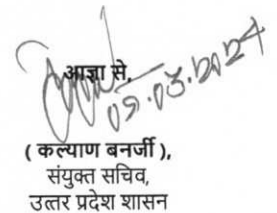 आज्ञा से,
05.03.2024
( कल्याण बनर्जी ),
संयुक्त सचिव,
उत्तर प्रदेश शासन